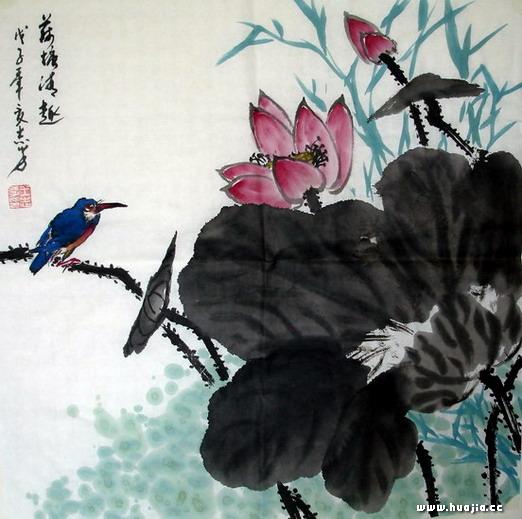 荷塘清趣
戊子年夏志芳
www.huajia.cc